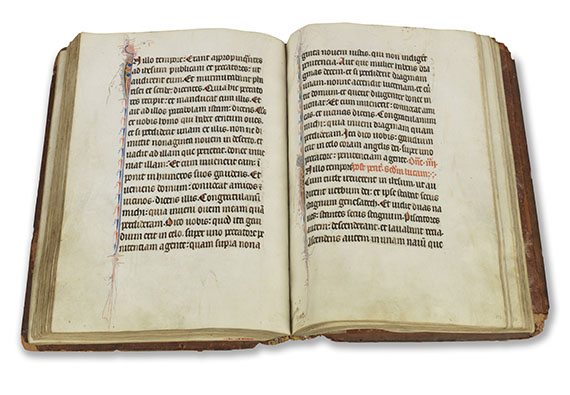 In illo tempore: Erant appropinquātes
ad iesum publicani et peccatores: ut
audirent illum. Et murmurabant pha
risei et scribe: dicentes. Quia hic peccato
res recipit: et manducat cum illis. Et
ait ad illos parabolam istam: dicens. Quis
ex vobis homo qui habet centum oues.
et si perdiderit unam ex illis. non ne di
mittit nonaginta nouem in deserto. et
vadit ad illam que perierat: donec inue
niat illam: Et cum inuenerit eam: im
ponit in humeros suos gaudens. Et
ueniens domum: conuocat amicos et
uicinos. dicens illis. Congratulamini
michi: quia inueni ouem meam que
perdideram. Dico uobis: quod ita gau
dium erit in celo. super uno peccatore pe
nitenciam agente: quam supra nona
ginta nouem iustis. qui non indigent
penitencia. Aut que mulier habens dra
gmas decem. et si perdiderit dragmam
unam: nonne accendit lucernam. et euertit
domum. et querit diligenter donec in
ueniat. Et cum inuenerit: conuocat ami
cas et uicinas dicens. Congratulamini
michi: quia inueni dragmam quam
perdideram. Ita dico uobis: gaudium
erit in celo coram angelis dei: super uno
peccatore: penitenciam agente.
In illo tempore: secdm lucam:
Cum turbe irruerent in iesum. ut au
dirent uerbum dei: et ipse stabat secus
stagnum genesareth. Et uidit duas na
ues: stantes secus stagnum. Piscatores
autem: descenderant. et lauabant recia.
Ascendens autem in unam nauim que